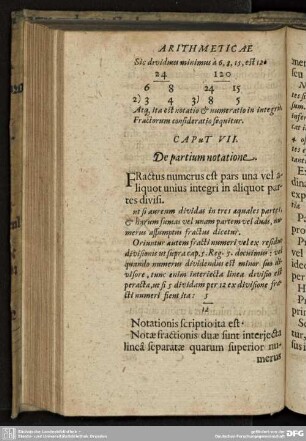 ARITHMETICAE
Sic dividuus minimus à 6, 8, 15, est 120
24 120
6 8 24 15
2) 3 4 3) 8 5
Atq, ita est notatio & numeratio in integris
Fractorum consideratio sequitur.
CAPUT VII.
De partium notatione.
FRactus numerus est pars una vel a-
liquot unius integri in aliquot par-
tes divisi.
ut si aureum dividas in tres aequales partes,
& harum sumas vel unam partem vel duas, nu-
merus assumptus fractus dicetur.
Oriuntur autem fracti numeri vel ex residuo
divisionis ut supra cap. 5. Reg. 3. docuimus: vel
quando numerus dividendus est minor suo di-
visore, tunc enim interiecta linea divisio est
peracta, ut si 5 dividam per 12 ex divisione fra-
cti numeri fient ita: 5
12
Notationis scriptio ita est.
Notae fractionis duae sunt interjecta
lineâ separatae quarum superior nu-
merus